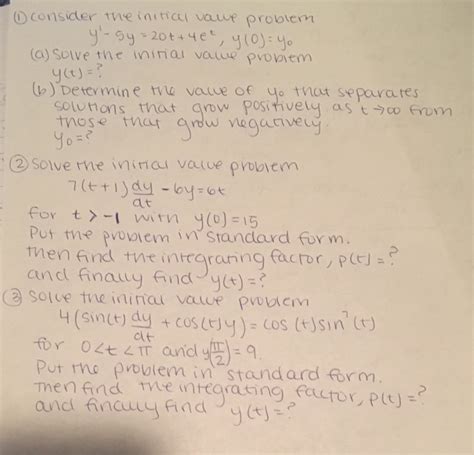 ① consider the initial value problem
y' - 5y = 20t + 4eᵗ, y(0) = y₀
(a) Solve the initial value problem
y(t) = ?
(b) Determine the value of y₀ that separates
solutions that grow positively as t → ∞ from
those that grow negatively.
y₀ = ?
② Solve the initial value problem
7(t+1) dy/dt - 6y = 6t
for t > -1 with y(0) = 15
Put the problem in standard form.
then find the integrating factor, p(t) = ?
and finally find y(t) = ?
③ Solve the initial value problem
4(sin(t) dy/dt + cos(t)y) = cos(t)sin⁷(t)
for 0<t<π and y(π/2) = 9.
Put the problem in standard form.
Then find the integrating factor, p(t) = ?
and finally find y(t) = ?